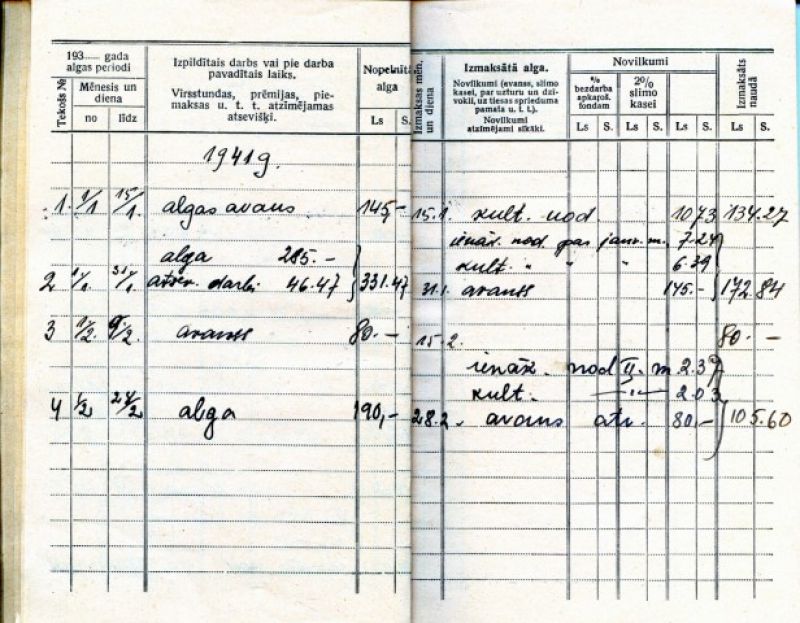 193___ gada
algas periodi
Tekošs №
Mēnesis un
diena
no līdz
Izpildītais darbs vai pie darba
pavadītais laiks.
Virsstundas, prēmijas, pie-
maksas u. t. t. atzīmējamas
atsevišķi.
Nopelnītā
alga
Ls S.
Izmaksas mēn.
un diena
Izmaksātā alga.
Novilkumi (avanss, slimo
kasei, par uzturu un dzī-
vokli, uz tiesas sprieduma
pamata u. t. t.).
Novilkumi
atzīmējami sīkāki.
Novilkumi
%
bezdarba
apkaroš.
fondam
2%
slimo
kasei
Ls S. Ls S. Ls S.
Izmaksāts
naudā
Ls S.
1941 g.
1 1/1 15/1. algas avans 145,- 15.1. kult. nod 10 73 134.27
ienāk. nod. par janv. m. 7.24
alga 285.-
kult. " " 6.39
2 1/1 31/1 atsev. darbi 46.47 331.47 31.1. avanss 145.- 172.84
3 1/2. /2. avanss 80.- 15.2. 80.-
ienāk. nod II. m 2.37
kult. -"- 2.03
4 1/2 /2 alga 190,- 28.2. avans atv. 80,- 105.60